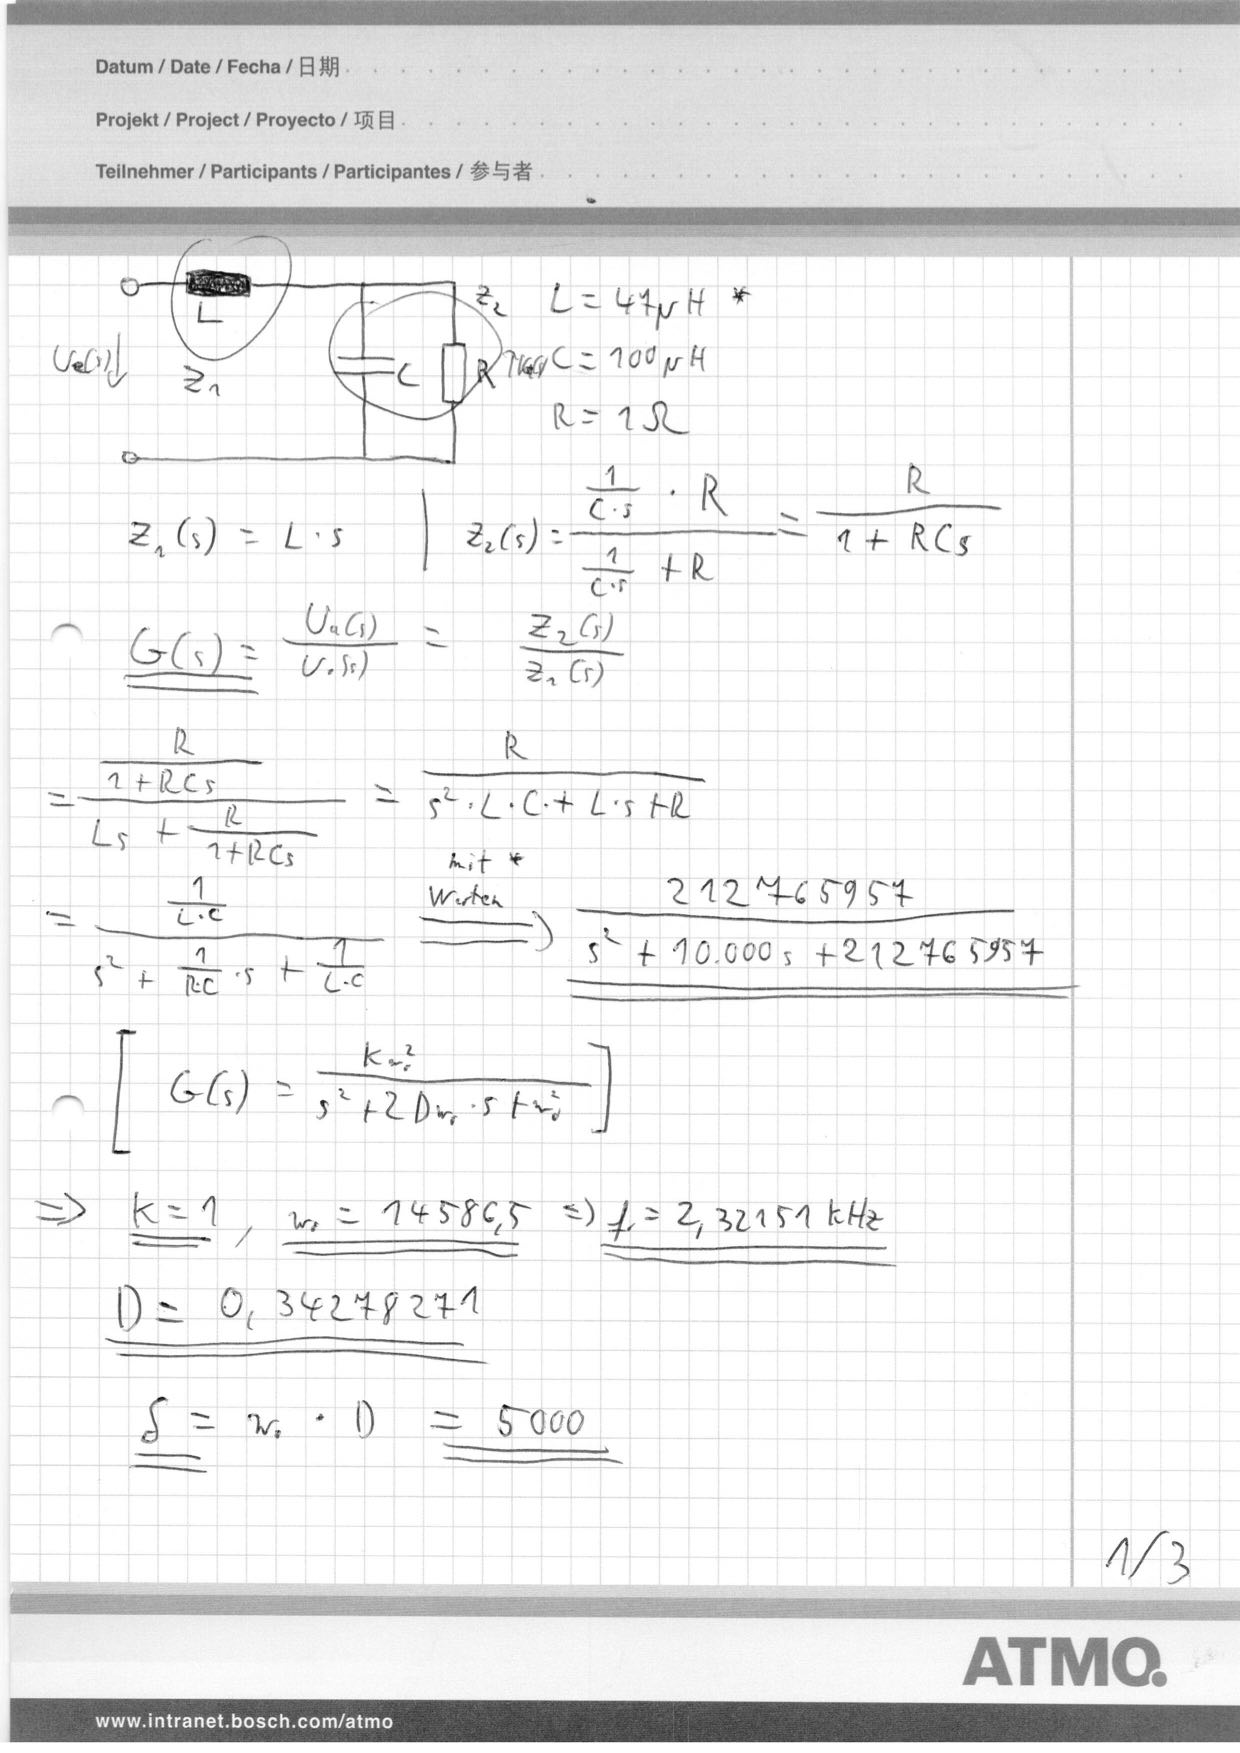 Datum / Date / Fecha / 日期
Projekt / Project / Proyecto / 项目
Teilnehmer / Participants / Participantes / 参与者
L
Z₁
Ue(s)↓
C
R
Z₂
L = 47µH *
C = 100µH
R = 1Ω
Z₁(s) = L·s | Z₂(s) = (1/(C·s) · R)/(1/(C·s) + R) = R/(1 + RCs)
G(s) = Ua(s)/Ue(s) = Z₂(s)/Z₁(s)
= (R/(1+RCs))/(Ls + R/(1+RCs)) = R/(s²·L·C·+ L·s + R)
= (1/(L·C))/(s² + 1/(R·C)·s + 1/(L·C)) mit * Werten ⇒ 212765957/(s² + 10.000s + 212765957)
[G(s) = Kω₀²/(s² + 2Dω₀·s + ω₀²)]
⇒ K = 1, ω₀ = 14586,5 ⇒ f₀ = 2,32151 kHz
D = 0,34278271
δ = ω₀ · D = 5000
1/3
ATMO.
www.intranet.bosch.com/atmo